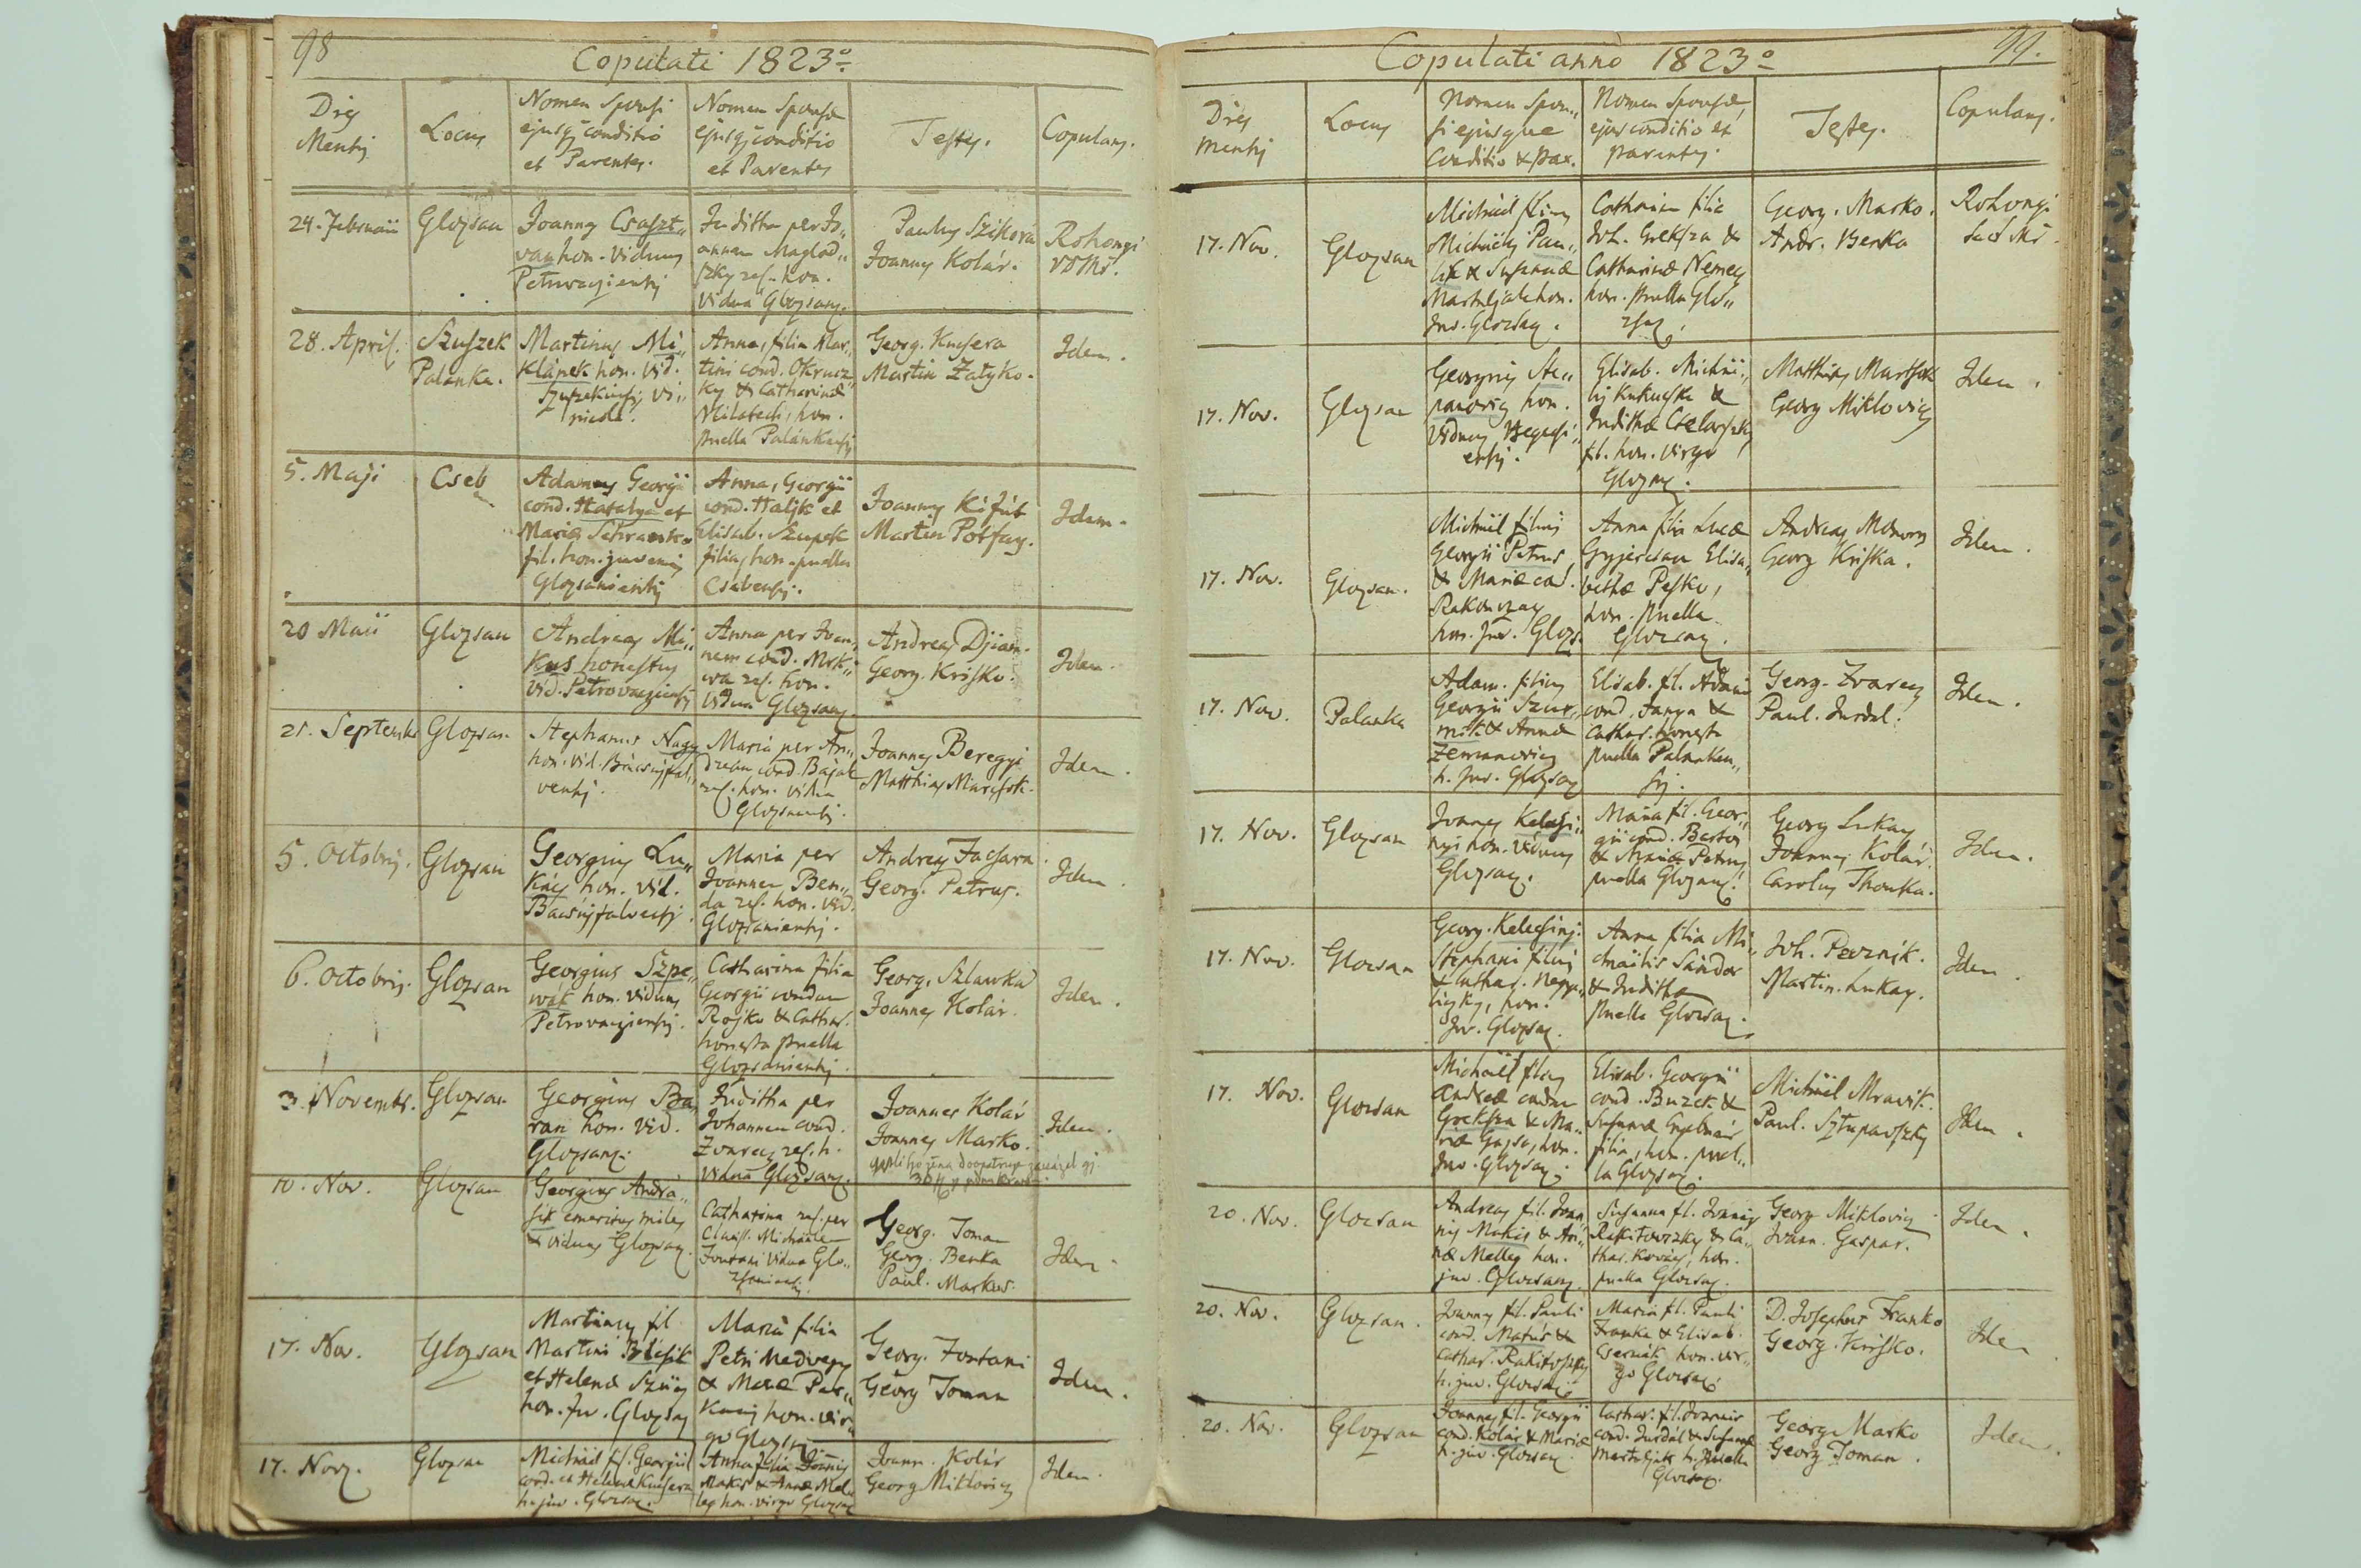 98
Copulati 1823º
Dies
Mensis
Locus
Nomen Sponsi
ejusq conditio
et Parentes.
Nomen Sponsæ
ejusq conditio
et Parentes
Testes.
Copulans.
24. Februarii
Glozsan
Joannes Csaszt„
van hon. viduus
Petrovacziensis
Juditha per Jo„
annem Maglod„
szky rel. hon.
vidua Glozsans.
Paulus Szikora
Joannes Kolár.
Rohonyi
VDMr.
28. April.
Szuszek
Palanka.
Martinus Mi„
klánek hon. vid.
Anna, filia Mar„
tini cond. Okrucz„
ky & Catharinæ
hon.
puella Palánkensis
Georg. Kucsera
Martin Zatyko.
Idem.
5. Maji
Cseb
Adamus Georgii
cond. Hatalya et
Mariæ
fil. hon. juvenis
Glozsaniensis
Anna, Georgii
cond. Haljk et
Elisab. Szupek
filia, hon. puella
Csebensis.
Joannes Kófút
Martin
Idem.
20 Maii
Glozsan
Andreas Mi„
kus honestus
vid. Petrovaciensis
Anna per Joan„
nem cond. Mrk„
va rel. hon.
vidua Glozsans.
Andreas
Georg. Krisko.
Idem.
21. Septembr
Glozsan
Stephanus Nagy
hon. vid.
vensis.
Maria per An„
dream cond. Baják
rel. hon. vidua
Glozsanensis.
Joannes Beregyi
Matthias
Idem.
5. Octobris.
Glozsan
Georgius Lu„
kács hon. vid.
Maria per
Joannem Ben„
da rel. hon. vid.
Glozsaniensis.
Andreas Facsara
Georg. Petrus.
Idem.
6. Octobris.
Glozsan
Georgius Szpe„
vák hon. viduus
Petrovacziensis.
Catharina filia
Georgii condam
Rojko & Cathar.
honesta puella
Glozsaniensis.
Georg. Szlavka
Joannes Kolár.
Idem.
3. Novembr.
Glozsan
Georgius Ba„
ran hon. vid.
Glozsans.
Juditha per
Johannem cond.
rel. h.
vidua Glozsans.
Joannes Kolár
Joannes Marko.
Idem.
10. Nov.
Glozsan
Georgius Andrá„
sik emeritus miles
& viduus Glozsan.
Catharina rel. per
Michaelem
Fontani vidua Glo„
Georg. Toman
Georg. Benka
Paul. Markus.
Idem.
17. Nov.
Glozsan
Martinus fil
Martini
et Helenæ
hon. Juv. Glozsan
Maria filia
Petri Medvegy
hon. vir„
go Glozsan
Georg. Fontani
Georg Toman
Idem.
17. Nov.
Glozsan
Michael fil. Georgii
cond. et Helenæ Kucsera
h. juv. Glozsan.
Anna filia Joannis
Makis & Annæ Mel„
leg hon. virgo Glozsan
Joann. Kolár
Georg Miklovicz
Idem.
Copulati anno 1823º
99.
Dies
mensis
Locus
Nomen Spon„
si ejusque
Conditio & par.
Nomen Sponsæ,
ejus conditio et
parentes.
Testes.
Copulans.
17. Nov.
Glozsan
Michael filius
Michaelis Pau„
lik & Susannæ
hon.
Juv. Glozsan.
Catharina filia
Joh. Greksza &
Catharinæ Nemecz
hon. puella Glo„
Georg. Marko.
Andr. Benka
Rohonyi
17. Nov.
Glozsan
Georgius Ste„
panovicz hon.
viduus
ensis.
Elisab. Michae„
lis Kukucska &
Judithæ
fil. hon. virgo
Glozsan.
Matthias
Georg Miklovicz
Idem.
17. Nov.
Glozsan.
Michael filius
Georgii Petrus
& Mariæ cond.
Rakonczay
hon. Juv. Glozs.
Anna filia Lucæ
Elisa„
bethæ Pesko,
hon. puella
Glozsan.
Andreas
Georg Kriska.
Idem.
17. Nov.
Palanka
Adam. filius
Georgii Szur„
& Annæ
Zemanovicz
h. Juv. Glozsan
Elisab. fil. Adami
cond. &
Cathar. honesta
puella Palanken„
sis.
Georg.
Paul.
Idem.
17. Nov.
Glozsan
Joannes Kelecsi„
nyi hon. viduus
Glozsan.
Maria fil. Geor„
gii cond.
& Mariæ Petrus
puella Glozsans.
Georg Lukacs
Joannes Kolár.
Carolus Thomka.
Idem.
17. Nov.
Glozsan
Georg. Kelecsinyi
Stephani filius
hon.
Juv. Glozsan.
Anna filia Mi„
chaelis Sándor
& Juditha
puella Glozsan.
Joh.
Martin. Lukacs.
Idem.
17. Nov.
Glozsan
Michael filius
Andreæ condam
Greksza & Ma„
riæ hon.
Juv. Glozsan.
Elisab. Georgii
cond. Buzek &
Susannæ
filia, hon. puel„
la Glozsan.
Michael Mravik.
Paul. Sztupavszky
Idem.
20. Nov.
Glozsan
Andreas fil. Joan
nis Makis & An„
næ Melleg hon.
juv. Glozsans.
Susanna fil. Joannis
Rakitovszky & Ca„
thar. Kovács, hon.
puella Glozsan.
Georg Miklovicz
Joann. Gaspar.
Idem.
20. Nov.
Glozsan.
Joannes fil. Pauli
cond. Matus &
Cathar. Rakitovszky
h. juv. Glozsan.
Maria fil. Pauli
Franko & Elisab.
Csernák hon. vir„
go Glozsan.
D. Josephus Franko
Georg. Krisko.
Idem
20. Nov.
Glozsan
Joannes fil. Georgii
cond. Kolár & Mariæ
h. juv. Glozsan.
Cathar. fil. Joannis
cond. & Susannæ
h. Puella
Glozsan.
Georg Marko
Georg Toman.
Idem.